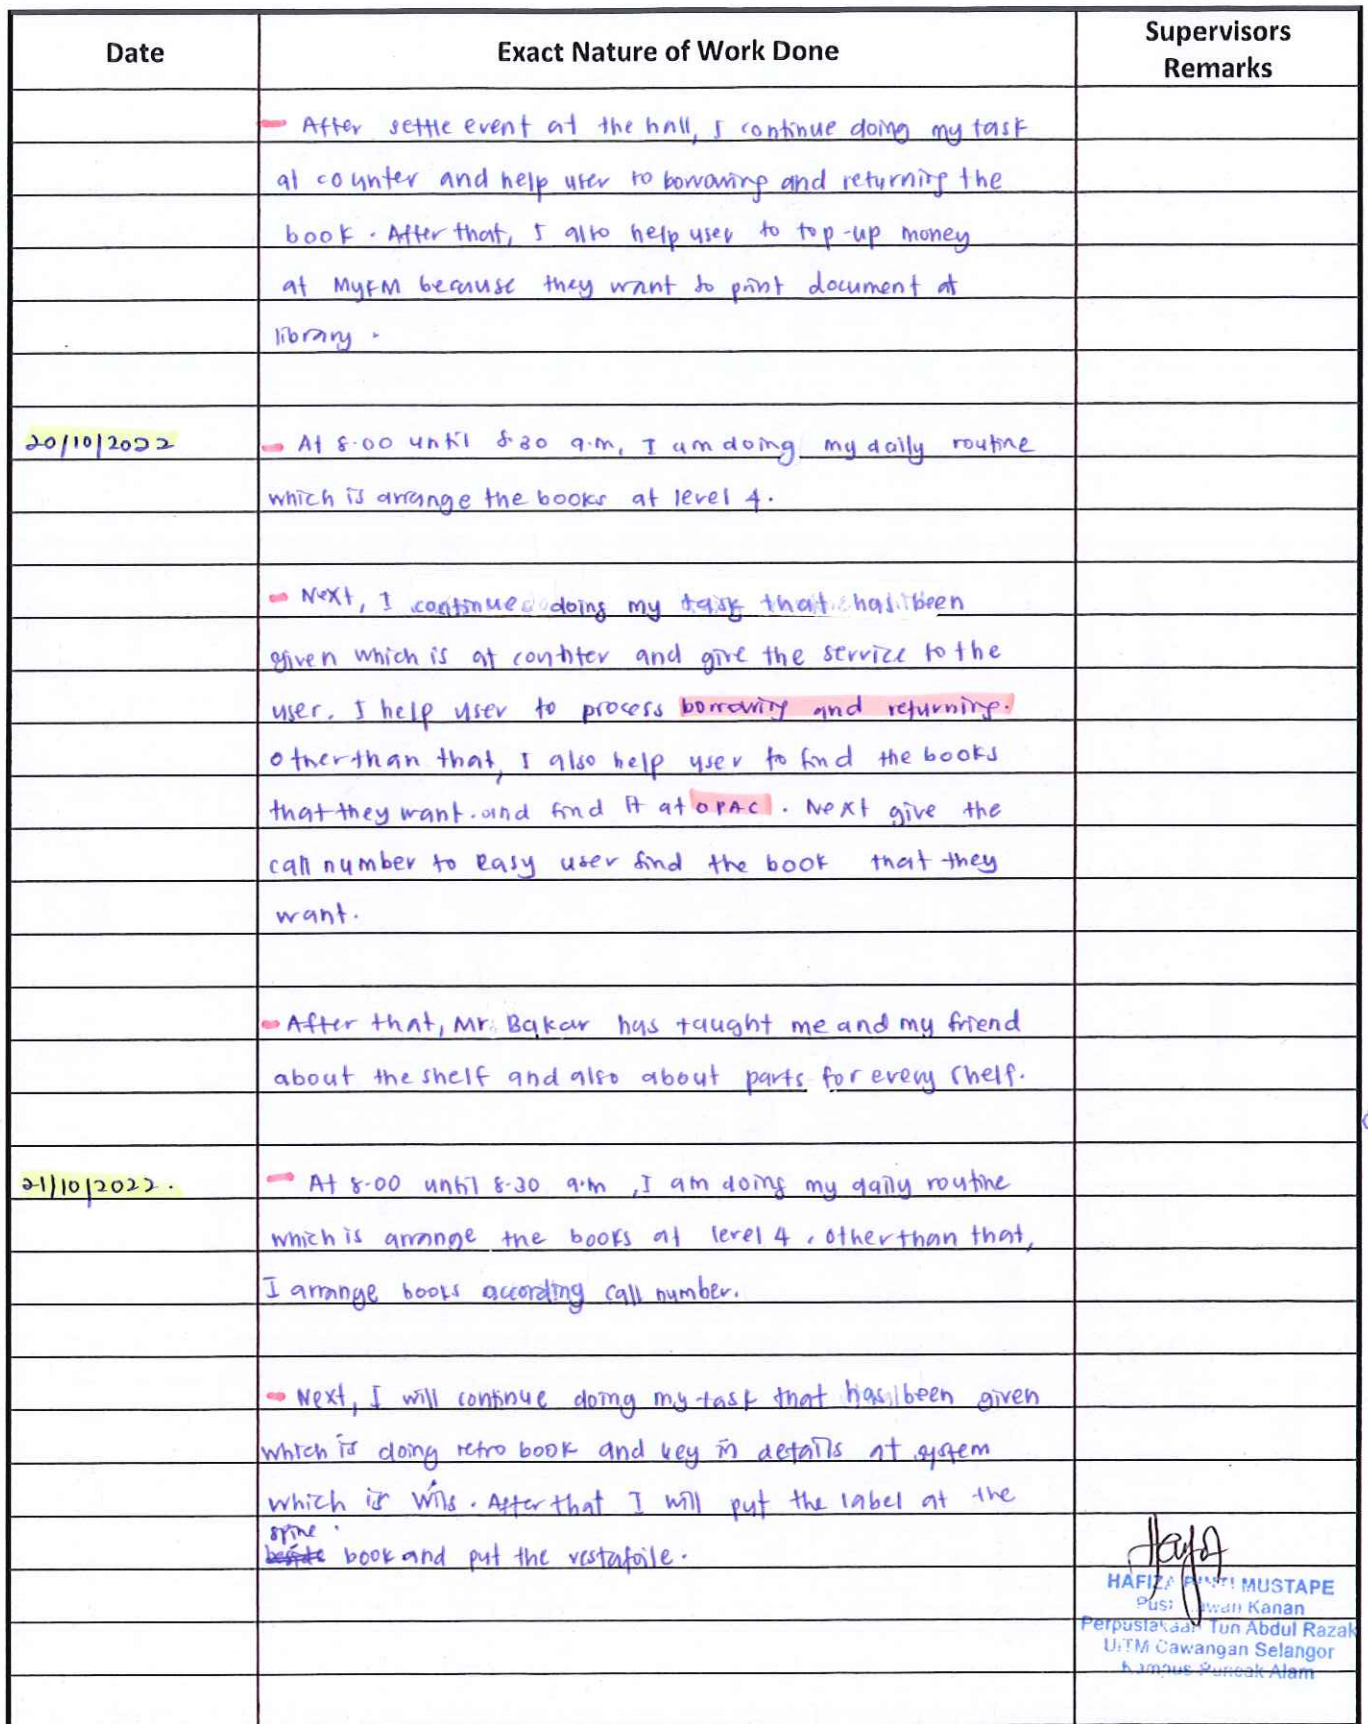 Date
Exact Nature of Work Done
Supervisors
Remarks
- After settle event at the hall, I continue doing my task
at counter and help user to borrowing and returning the
book. After that, I also help user to top-up money
at MyFM because they want to print document at
library.
20/10/2022
- At 8.00 until 8.30 a.m, I am doing my daily routine
which is arrange the books at level 4.
- Next, I continue doing my task that has been
given which is at counter and give the service to the
user. I help user to process borrowing and returning.
Other than that, I also help user to find the books
that they want. and find it at OPAC. Next give the
call number to easy user find the book that they
want.
- After that, Mr. Bakar has taught me and my friend
about the shelf and also about parts for every shelf.
21/10/2022.
- At 8.00 until 8.30 a.m, I am doing my daily routine
which is arrange the books at level 4. Other than that,
I arrange books according call number.
- Next, I will continue doing my task that has been given
which is doing retro book and key in details at system
which is Wils. After that I will put the label at the
spine.
book and put the vestafoile.
HAFIZA BINTI MUSTAPE
Kanan
Perpustakaan Tun Abdul Razak
UiTM Cawangan Selangor
Kampus Puncak Alam